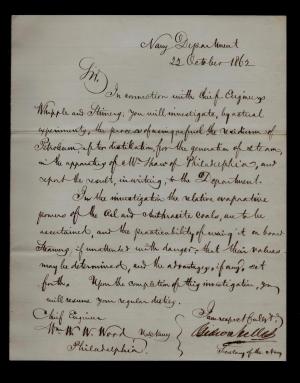 Navy Department
22 October 1862
Sir,
In connection with Chief Engineers
Whipple and Stimers, you will investigate, by actual
experiments, the process of using as fuel the residuum of
Petroleum, after distillation, for the generation of steam,
in the apparatus of Mr Shaw of Philadelphia, and
report the result, in writing, to the Department.
In the investigation the relative evaporative
powers of the Oil and Anthracite Coals, are to be
ascertained, and the practicability of using it on board
Steamers, if unattended with danger, that their values
may be determined, and the advantages, if any, set
forth. Upon the completion of this investigation, you
will resume your regular duties.
I am respectfully &c.
Chief Engineer
Wm. W. W. Wood
Gideon Welles
Philadelphia.
Secretary of the Navy